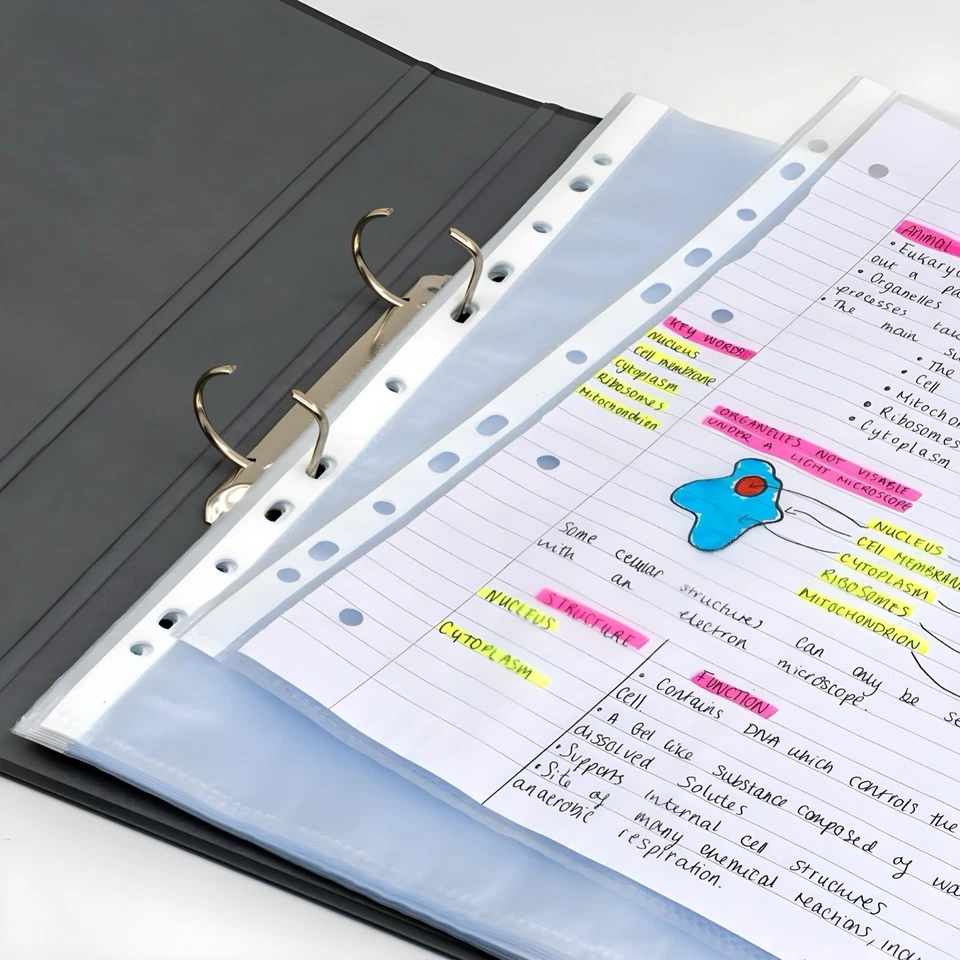 ANIMAL
• Eukaryo
out a pa
• Organelles
processes tak
• The main su
• The
• Cell
• Mitochon
• Ribosomes
• Cytoplasm
KEY WORDS
Nucleus
Cell membrane
Cytoplasm
Ribosomes
Mitochondrion
ORGANELLES NOT VISABLE
UNDER A LIGHT MICROSCOPE
NUCLEUS
CELL MEMBRAN
CYTOPLASM
RIBOSOMES
MITOCHONDRION
Some celular structures can only be se
with an electron microscope.
STRUCTURE
NUCLEUS
CYTOPLASM
FUNCTION
• Contains DNA which controls the
Cell.
• A Gel like Substance composed of wa
dissolved Solutes
• Supports Internal cell structures
• Site of many chemical reactions, incl
anaerobic respiration.